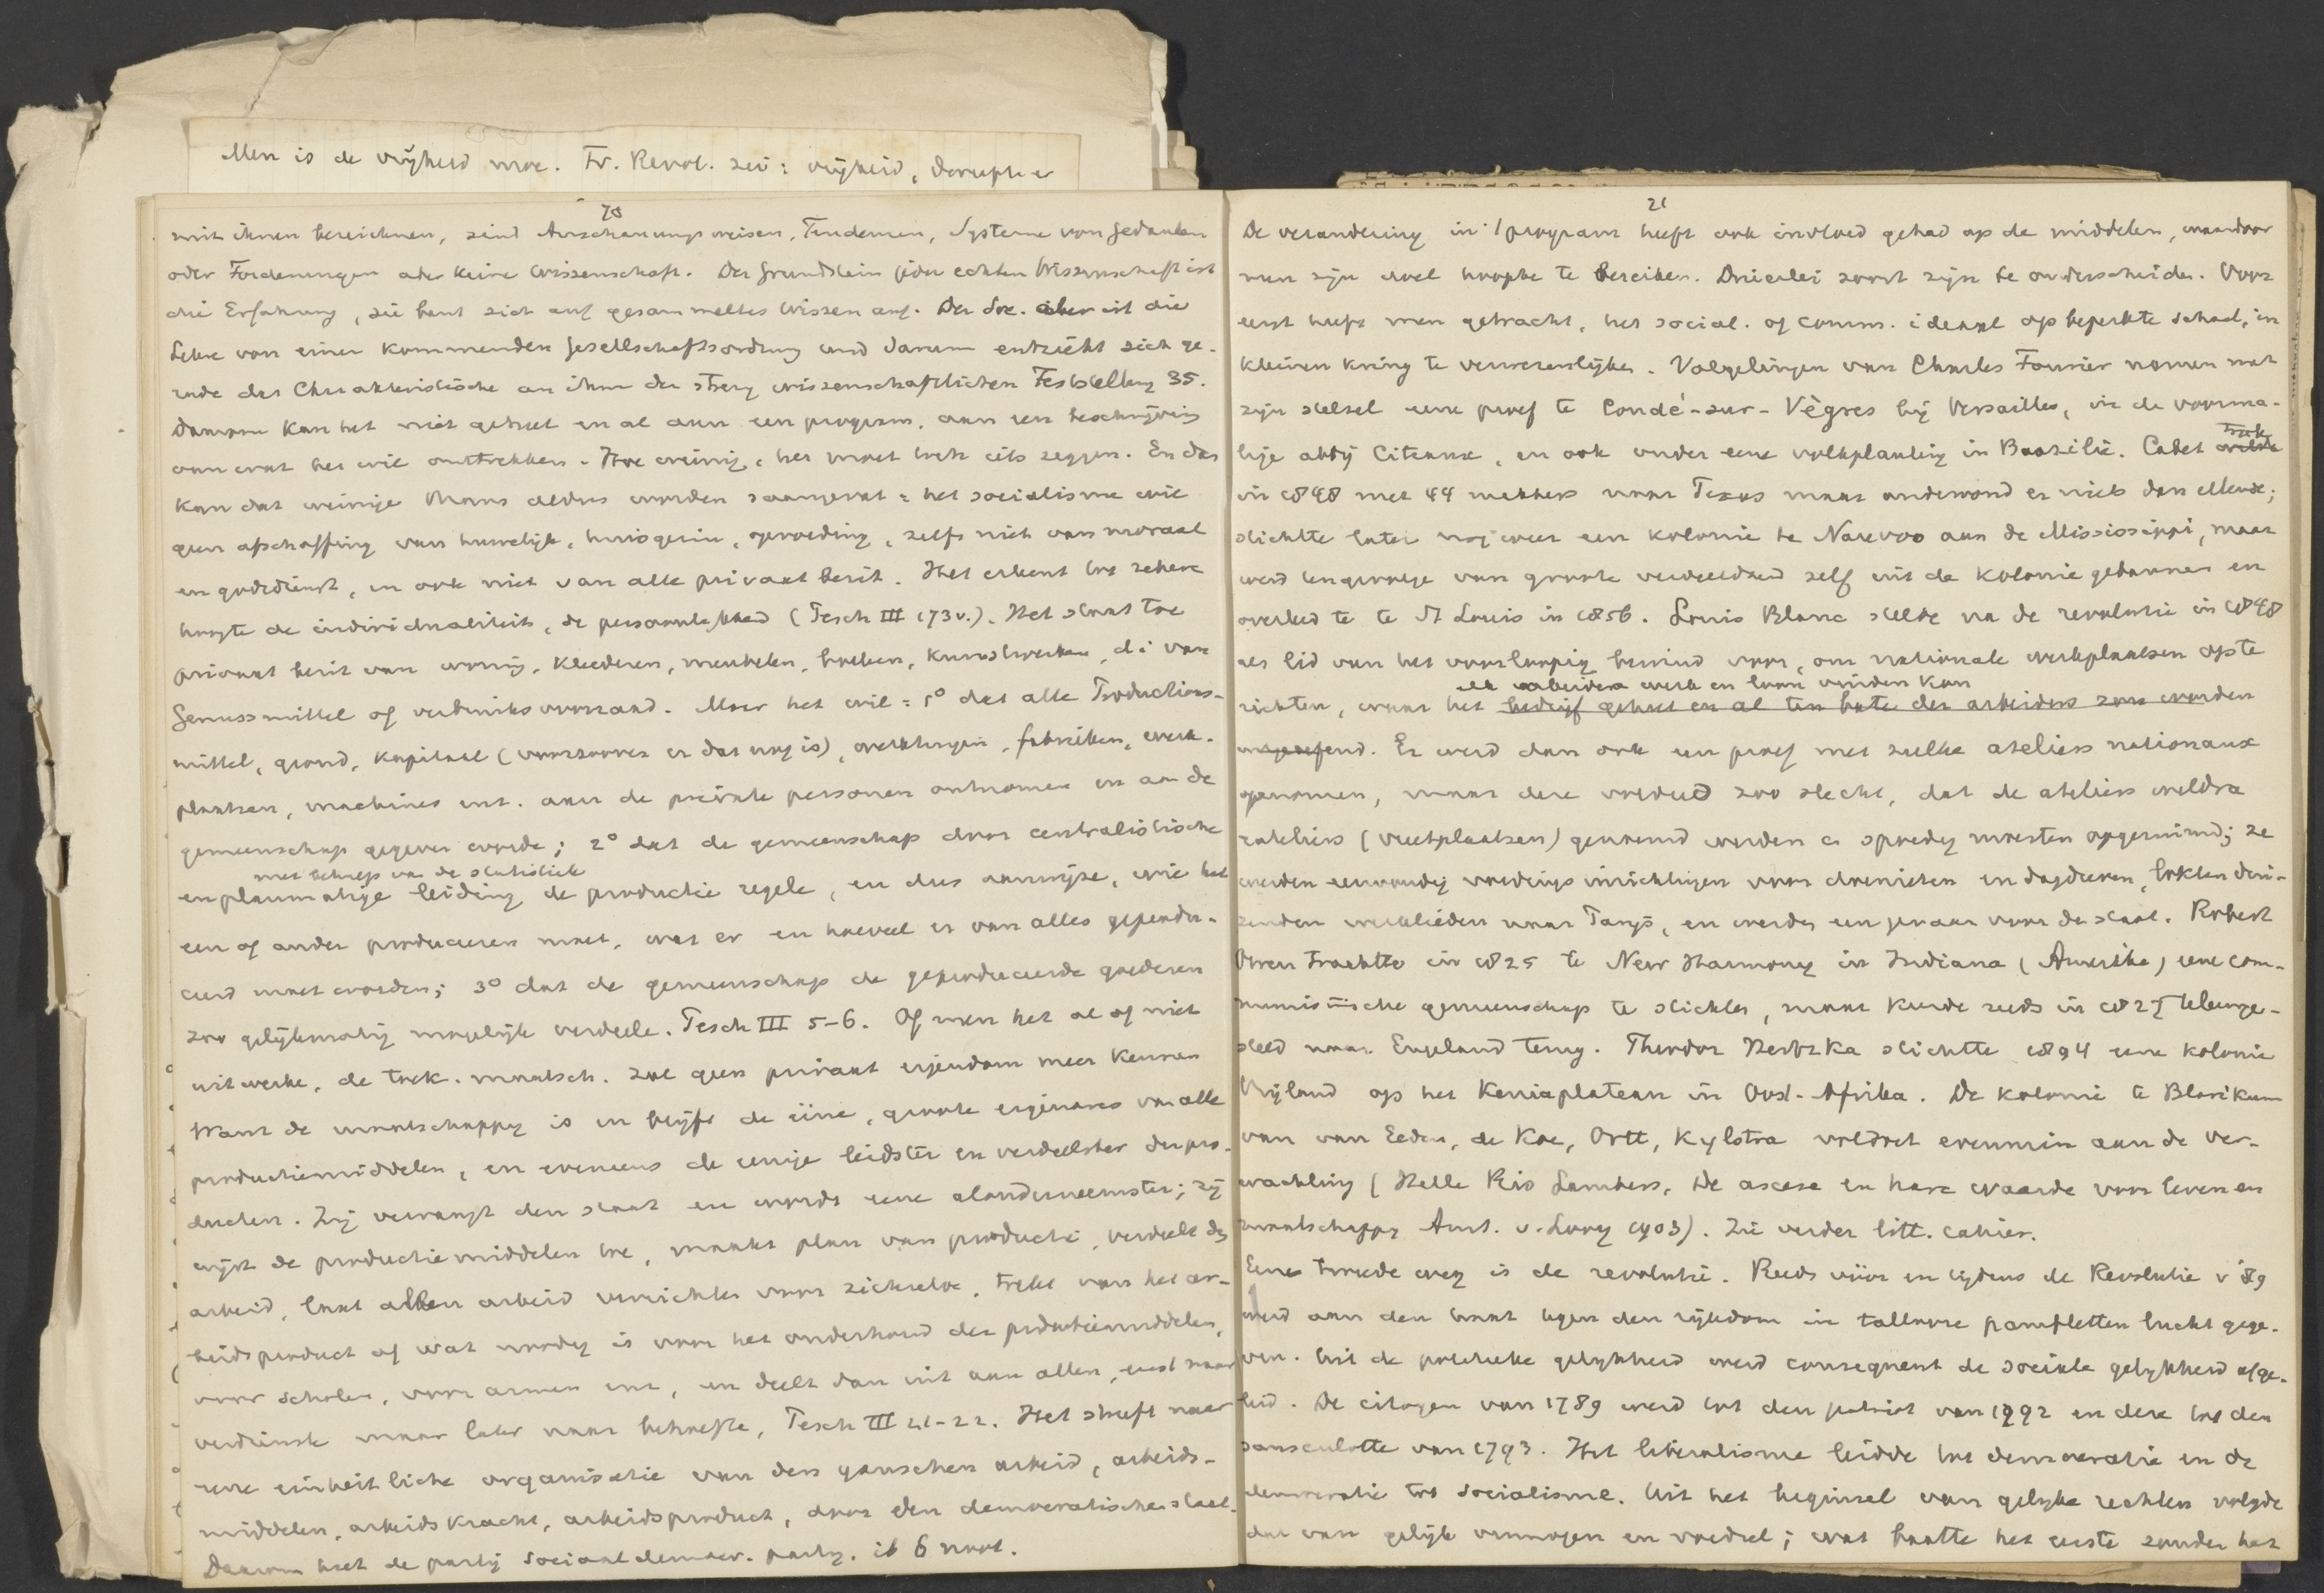 Men is de vrijheid moe. Fr. Revol. zei: vrijheid,
20
mit ihnen bezeichnen, sind Anschauungsweisen, Tendenzen, Systeme von Gedanken
oder Forderungen aber keine Wissenschaft. Der Grundstein jeder echten Wissenschaft ist
die Erfahrung, sie baut sich auf gesammeltes Wissen auf. Der Soc. aber ist die
Lehre von einer kommenden Gesellschaftsordnung und darum entzieht sich ge-
rade das Charakteristische an ihm der streng wissenschaftlichen Feststellung 35.
Daarom kan het niet geheel en al aan een program, aan een beschrijving
van wat het wil onttrekken. Hoe weinig, het moet toch iets zeggen. En dan
kan dat weinige thans aldus worden saamgevat: het socialisme wil
geen afschaffing van huwelijk, huisgezin, opvoeding, zelfs niet van moraal
en godsdienst, en ook niet van alle privaat bezit. Het erkent tot zekere
hoogte de individualiteit, de persoonlijkheid (Pesch III 173v.). Het staat toe
privaat bezit van woning, kleederen, meubelen, boeken, kunstwerken, d.i. van
Genussmittel of verbruiksvoorraad. Maar het wil: 1° dat alle Productions-
mittel, grond, kapitaal (voorzoover er dat nog is), werktuigen, fabrieken, werk-
plaatsen, machines enz. aan de private personen ontnomen en aan de
gemeenschap gegeven worde; 2° dat de gemeenschap door centralistische
met behulp van de statistiek
en planmatige leiding de productie regele, en dus aanwijze, wie het
een of ander produceeren moet, wat er en hoeveel er van alles geprodu-
ceerd moet worden; 3° dat de gemeenschap de geproduceerde goederen
zoo gelijkmatig mogelijk verdeele. Pesch III 5-6. Of men het al of niet
uitwerke, de toek. maatsch. zal geen privaat eigendom meer kennen
Want de maatschappij is en blijft de eene, groote eigenares van alle
productiemiddelen, en eveneens de eenige leidster en verdeelster der pro-
ducten. Zij vervangt den staat en wordt eene alonderneemster; zij
wijst de productiemiddelen toe, maakt plan van productie, verdeelt de
arbeid, laat allen arbeid verrichten voor zichzelve, trekt van het ar-
beidsproduct af wat noodig is voor het onderhoud der productiemiddelen,
voor scholen, voor armen enz, en deelt dan uit aan allen, eerst naar
verdienste maar later naar behoefte, Pesch III 21-22. Het streeft naar
eene einheitliche organisatie van den ganschen arbeid, arbeids-
middelen, arbeidskracht, arbeidsproduct, door den democratischen staat.
Daarom heet de partij sociaaldemocr. partij. ib 6 noot.
21
De verandering in 't program heeft ook invloed gehad op de middelen, waardoor
men zijn doel hoopte te bereiken. Drieërlei soort zijn te onderscheiden. Voor
eerst heeft men getracht, het social. of comm. ideaal op beperkte schaal, in
kleinen kring te verwezenlijken. Volgelingen van Charles Fourier namen met
zijn stelsel eene proef te Condé-sur-Vègres bij Versailles, in de voorma-
lige abdij Citeaux, en ook onder eene volkplanting in Brazilië. Cabet
trok
in 1848 met 44 makkers naar Texas maar ondervond er niets dan ellende;
stichtte later nog weer een kolonie te Nauvoo aan de Mississippi, maar
werd tengevolge van groote verdeeldheid zelf uit de kolonie gebannen en
overleed te te St Louis in 1856. Louis Blanc stelde na de revolutie in 1848
als lid van het voorloopig bewind voor, om nationale werkplaatsen op te
elk arbeider werk en loon vinden kan
richten, waar het bedrijf geheel en al ten bate der arbeiders zou worden
uitgeoefend. Er werd dan ook een proef met zulke ateliers nationaux
genomen, maar deze voldeed zoo slecht, dat de ateliers weldra
rateliers (vreetplaatsen) genoemd werden en spoedig moesten opgeruimd; ze
werden eenvoudig voedingsinrichtingen voor drenisten en dagdieven, lokten dui-
zenden werklieden naar Parijs, en werden een gevaar voor de staat. Robert
Owen trachtte in 1825 te New Harmony in Indiana (Amerika) eene com-
munistische gemeenschap te stichten, maar keerde reeds in 1827 teleurge-
steld naar Engeland terug. Theodor Hertzka stichtte 1894 eene kolonie
Vrijland op het Keniaplateau in Oost-Afrika. De kolonie te Blarikum
van van Eeden, de Koe, Ortt, Kylstra voldoet evenmin aan de ver-
wachting (Helle Rio Lambers, De ascese en hare waarde voor leven en
maatschappij Amst. v. Looy 1903). Zie verder litt. cahier.
Eene tweede weg is de revolutie. Reeds vóór en tijdens de Revolutie v '89
werd aan den haat tegen den rijkdom in tallooze pamfletten lucht gege-
ven. Uit de politieke gelijkheid werd consequent de sociale gelijkheid afge-
leid. De citoyen van 1789 werd tot den patriot van 1792 en deze tot den
sansculotte van 1793. Het liberalisme leidde tot democratie en de
democratie tot socialisme. Uit het beginsel van gelijke rechten volgde
dat van gelijk vermogen en voordeel; wat baatte het eerste zonder het